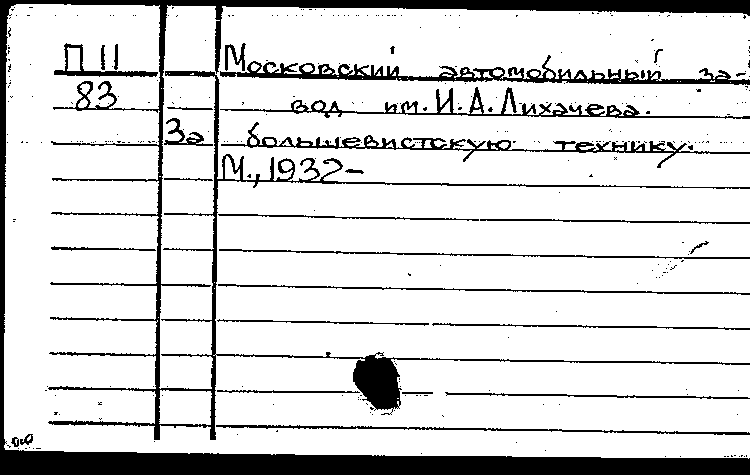 П 11 Московский автомобильный за-
83 вод им. И. А. Лихачева.
За большевистскую технику.
М., 1932-